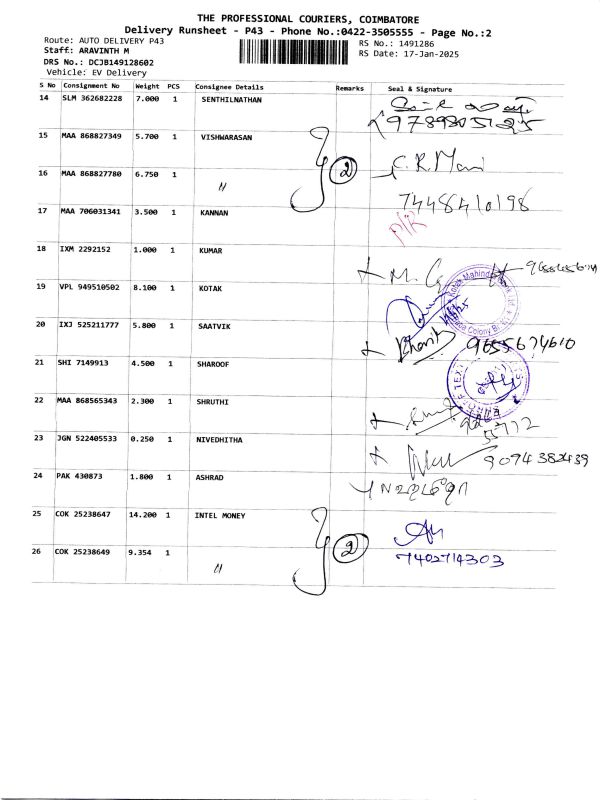 THE PROFESSIONAL COURIERS, COIMBATORE
Delivery Runsheet - P43 - Phone No.:0422-3505555 - Page No.:2
Route: AUTO DELIVERY P43
Staff: ARAVINTH M
RS No.: 1491286
DRS No.: DCJB149128602
RS Date: 17-Jan-2025
Vehicle: EV Delivery
S No Consignment No Weight PCS Consignee Details Remarks Seal & Signature
14 SLM 362682228 7.000 1 SENTHILNATHAN
15 MAA 868827349 5.700 1 VISHWARASAN
2
C.R.Mani
16 MAA 868827780 6.750 1 "
7448410198
17 MAA 706031341 3.500 1 KANNAN
P/R
18 IXM 2292152 1.000 1 KUMAR
19 VPL 949510502 8.100 1 KOTAK
Kotak Mahindra Bank Ltd
20 IXJ 525211777 5.800 1 SAATVIK
9655674610
21 SHI 7149913 4.500 1 SHAROOF
22 MAA 868565343 2.300 1 SHRUTHI
23 JGN 522405533 0.250 1 NIVEDHITHA
9094382439
24 PAK 430873 1.800 1 ASHRAD
25 COK 25238647 14.200 1 INTEL MONEY
2
26 COK 25238649 9.354 1 "
7402714303